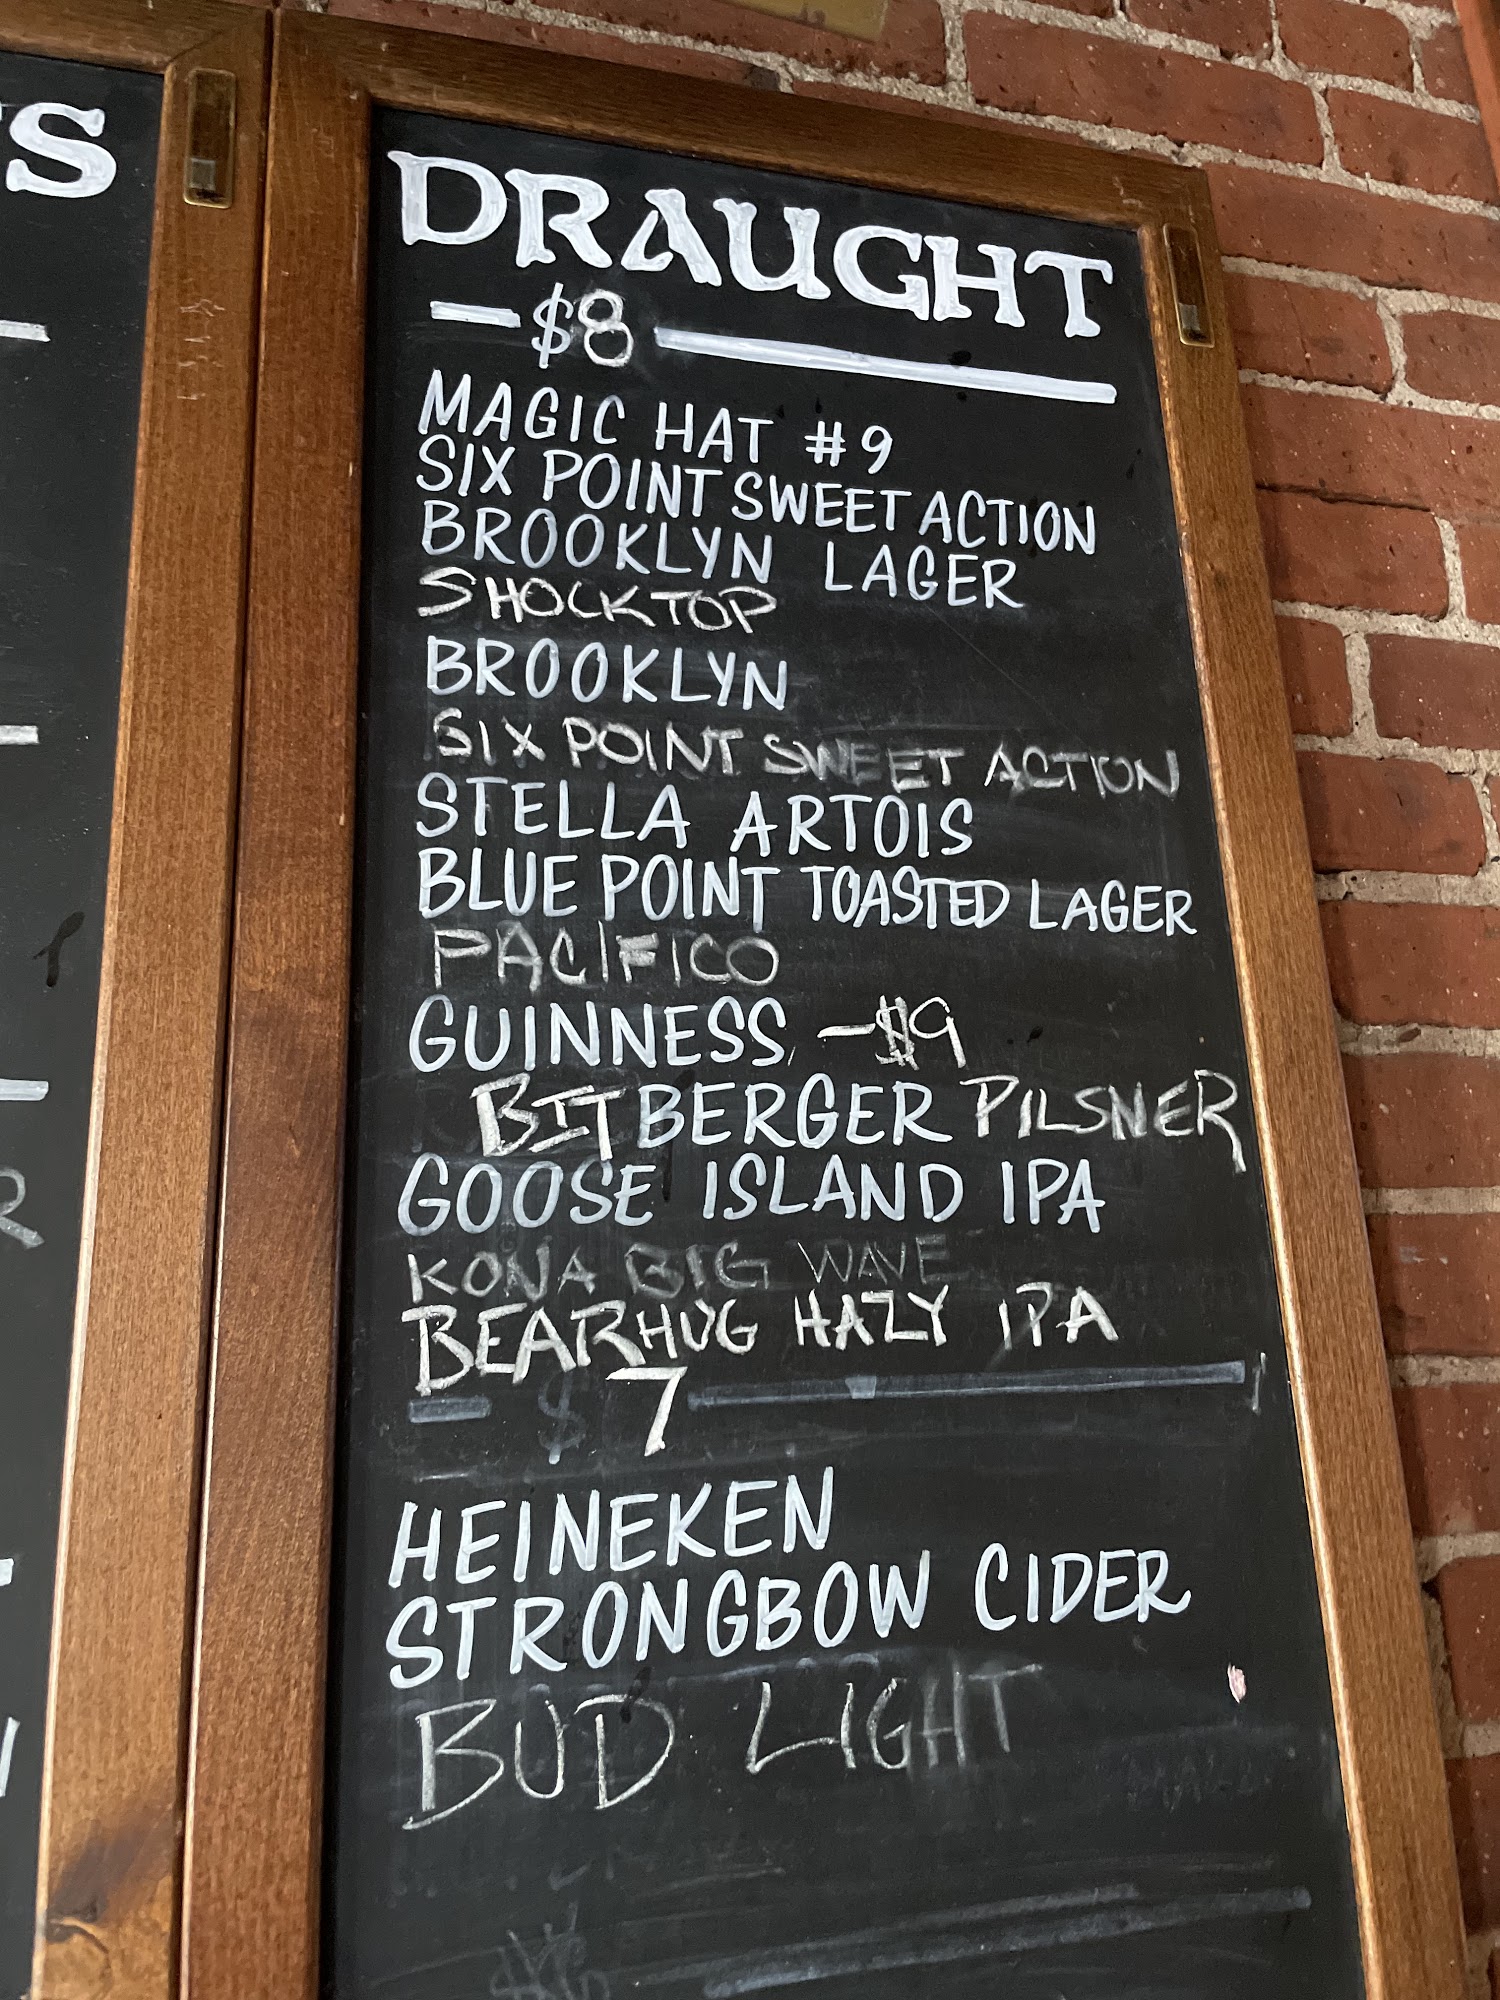 DRAUGHT
- $8
MAGIC HAT #9
SIX POINT SWEET ACTION
BROOKLYN LAGER
SHOCKTOP
BROOKLYN
SIX POINT SWEET ACTION
STELLA ARTOIS
BLUE POINT TOASTED LAGER
PACIFICO
GUINNESS -$9
BITBERGER PILSNER
GOOSE ISLAND IPA
KONA BIG WAVE
BEARHUG HAZY IPA
- $7
HEINEKEN
STRONGBOW CIDER
BUD LIGHT